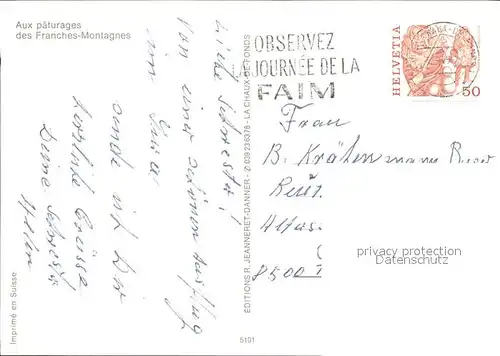 Aux pâturages
des Franches-Montagnes
Liebe Schwester!
Von einer schönen Ausflug
im Jura
sende ich Dir
herzliche Grüsse
Deine Schwester
Imprimé en Suisse
EDITIONS R. JEANNERET-DANNER - ✆ 039 236378 - LA CHAUX-DE-FONDS
5191
OBSERVEZ
JOURNÉE DE LA
FAIM
HELVETIA
50
Frau
B. Krähenmann
8500
privacy protection
Datenschutz